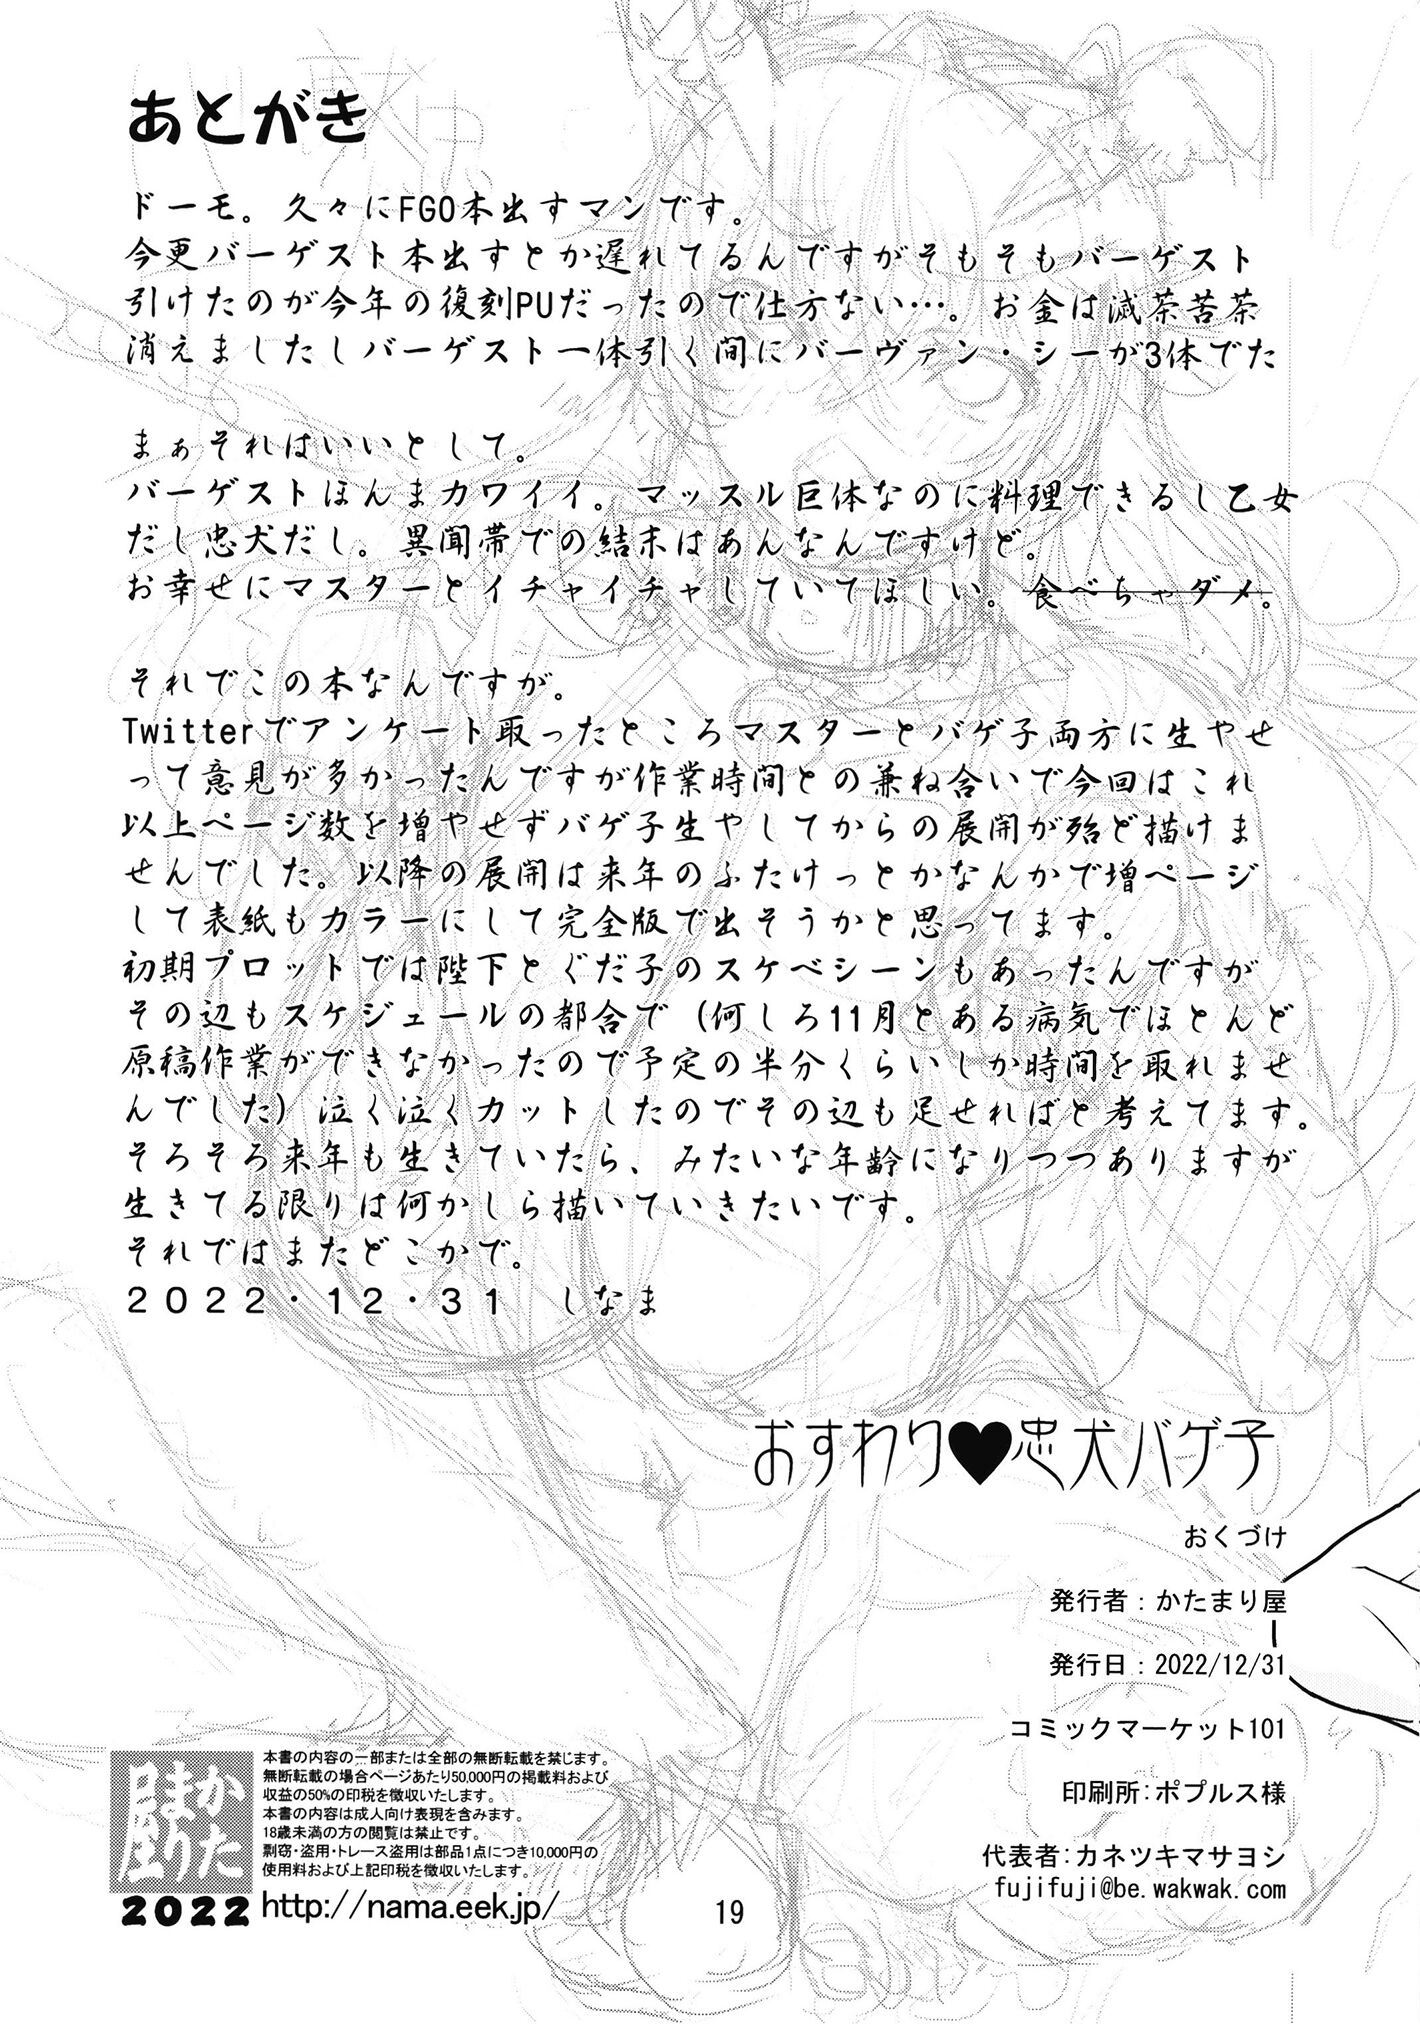 あとがき
ドーモ。久々にFGO本出すマンです。
今更バーゲスト本出すとか遅れてるんですがそもそもバーゲスト
引けたのが今年の復刻PUだったので仕方ない…。お金は滅茶苦茶
消えましたしバーゲスト一体引く間にバーヴァン・シーが3体でた
まぁそれはいいとして。
バーゲストほんまカワイイ。マッスル巨体なのに料理できるし乙女
だし忠犬だし。異聞帯での結末はあんなんですけど。
お幸せにマスターとイチャイチャしていてほしい。食べちゃダメ。
それでこの本なんですが。
Twitterでアンケート取ったところマスターとバゲ子両方に生やせ
って意見が多かったんですが作業時間との兼ね合いで今回はこれ
以上ページ数を増やせずバゲ子生やしてからの展開が殆ど描けま
せんでした。以降の展開は来年のふたけっとかなんかで増ページ
して表紙もカラーにして完全版で出そうかと思ってます。
初期プロットでは陛下とぐだ子のスケベシーンもあったんですが
その辺もスケジュールの都合で（何しろ11月とある病気でほとんど
原稿作業ができなかったので予定の半分くらいしか時間を取れませ
んでした）泣く泣くカットしたのでその辺も足せればと考えてます。
そろそろ来年も生きていたら、みたいな年齢になりつつありますが
生きてる限りは何かしら描いていきたいです。
それではまたどこかで。
２０２２・１２・３１　しなま
おすわり♥忠犬バゲ子
おくづけ
発行者：かたまり屋
発行日：2022/12/31
コミックマーケット101
印刷所:ポプルス様
代表者:カネツキマサヨシ
fujifuji@be.wakwak.com
かたまり屋
2022
本書の内容の一部または全部の無断転載を禁じます。
無断転載の場合ページあたり50,000円の掲載料および
収益の50%の印税を徴収いたします。
本書の内容は成人向け表現を含みます。
18歳未満の方の閲覧は禁止です。
剽窃・盗用・トレース盗用は部品1点につき10,000円の
使用料および上記印税を徴収いたします。
http://nama.eek.jp/
19